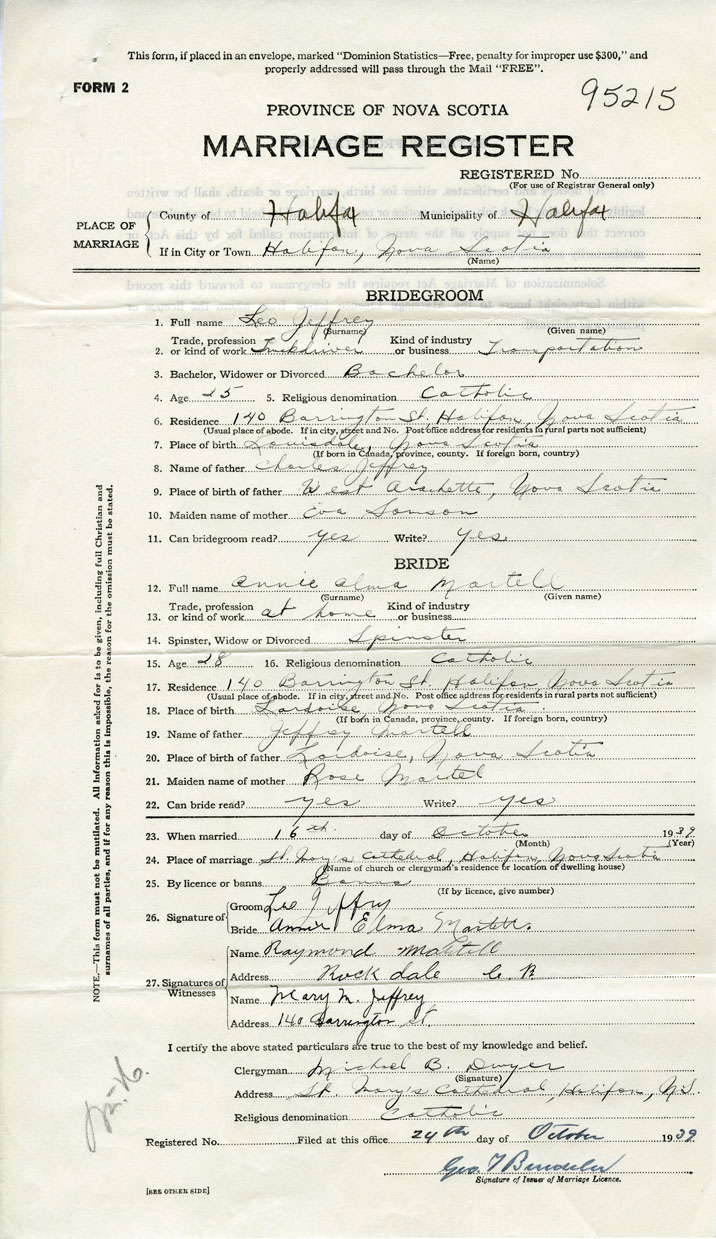 This form, if placed in an envelope, marked "Dominion Statistics—Free, penalty for improper use $300," and
properly addressed will pass through the Mail "FREE".
FORM 2
95215
PROVINCE OF NOVA SCOTIA
MARRIAGE REGISTER
REGISTERED No.
(For use of Registrar General only)
PLACE OF MARRIAGE
County of Halifax Municipality of Halifax
If in City or Town Halifax, Nova Scotia
(Name)
BRIDEGROOM
1. Full name Leo Jeffrey
(Surname) (Given name)
2. Trade, profession or kind of work Truckdriver Kind of industry or business Transportation
3. Bachelor, Widower or Divorced Bachelor
4. Age 25 5. Religious denomination Catholic
6. Residence 140 Barrington St. Halifax, Nova Scotia
(Usual place of abode. If in city, street and No. Post office address for residents in rural parts not sufficient)
7. Place of birth Louisdale, Nova Scotia
(If born in Canada, province, county. If foreign born, country)
8. Name of father Charles Jeffrey
9. Place of birth of father West Arachette, Nova Scotia
10. Maiden name of mother Eva Samson
11. Can bridegroom read? yes Write? yes
BRIDE
12. Full name Annie Elma Martell
(Surname) (Given name)
13. Trade, profession or kind of work at home Kind of industry or business
14. Spinster, Widow or Divorced Spinster
15. Age 28 16. Religious denomination Catholic
17. Residence 140 Barrington St. Halifax, Nova Scotia
(Usual place of abode. If in city, street and No. Post office address for residents in rural parts not sufficient)
18. Place of birth Lardoise, Nova Scotia
(If born in Canada, province, county. If foreign born, country)
19. Name of father Jeffrey Martell
20. Place of birth of father Lardoise, Nova Scotia
21. Maiden name of mother Rose Martel
22. Can bride read? yes Write? yes
23. When married 16th day of October 1939
(Month) (Year)
24. Place of marriage St. Mary's Cathedral, Halifax, Nova Scotia
(Name of church or clergyman's residence or location of dwelling house)
25. By licence or banns Banns
(If by licence, give number)
26. Signature of
Groom Leo Jeffry
Bride Annie Elma Martell.
27. Signatures of Witnesses
Name Raymond Martell
Address Rockdale C. B
Name Mary M. Jeffrey
Address 140 Barrington St.
I certify the above stated particulars are true to the best of my knowledge and belief.
Clergyman Michael B. Dwyer
(Signature)
Address St. Mary's Cathedral, Halifax, N.S.
Religious denomination Catholic
Registered No. Filed at this office 24th day of October 1939
Geo. T
Signature of Issuer of Marriage Licence.
[SEE OTHER SIDE]
NOTE.—This form must not be mutilated. All information asked for is to be given, including full Christian and
surnames of all parties, and if for any reason this is impossible, the reason for the omission must be stated.